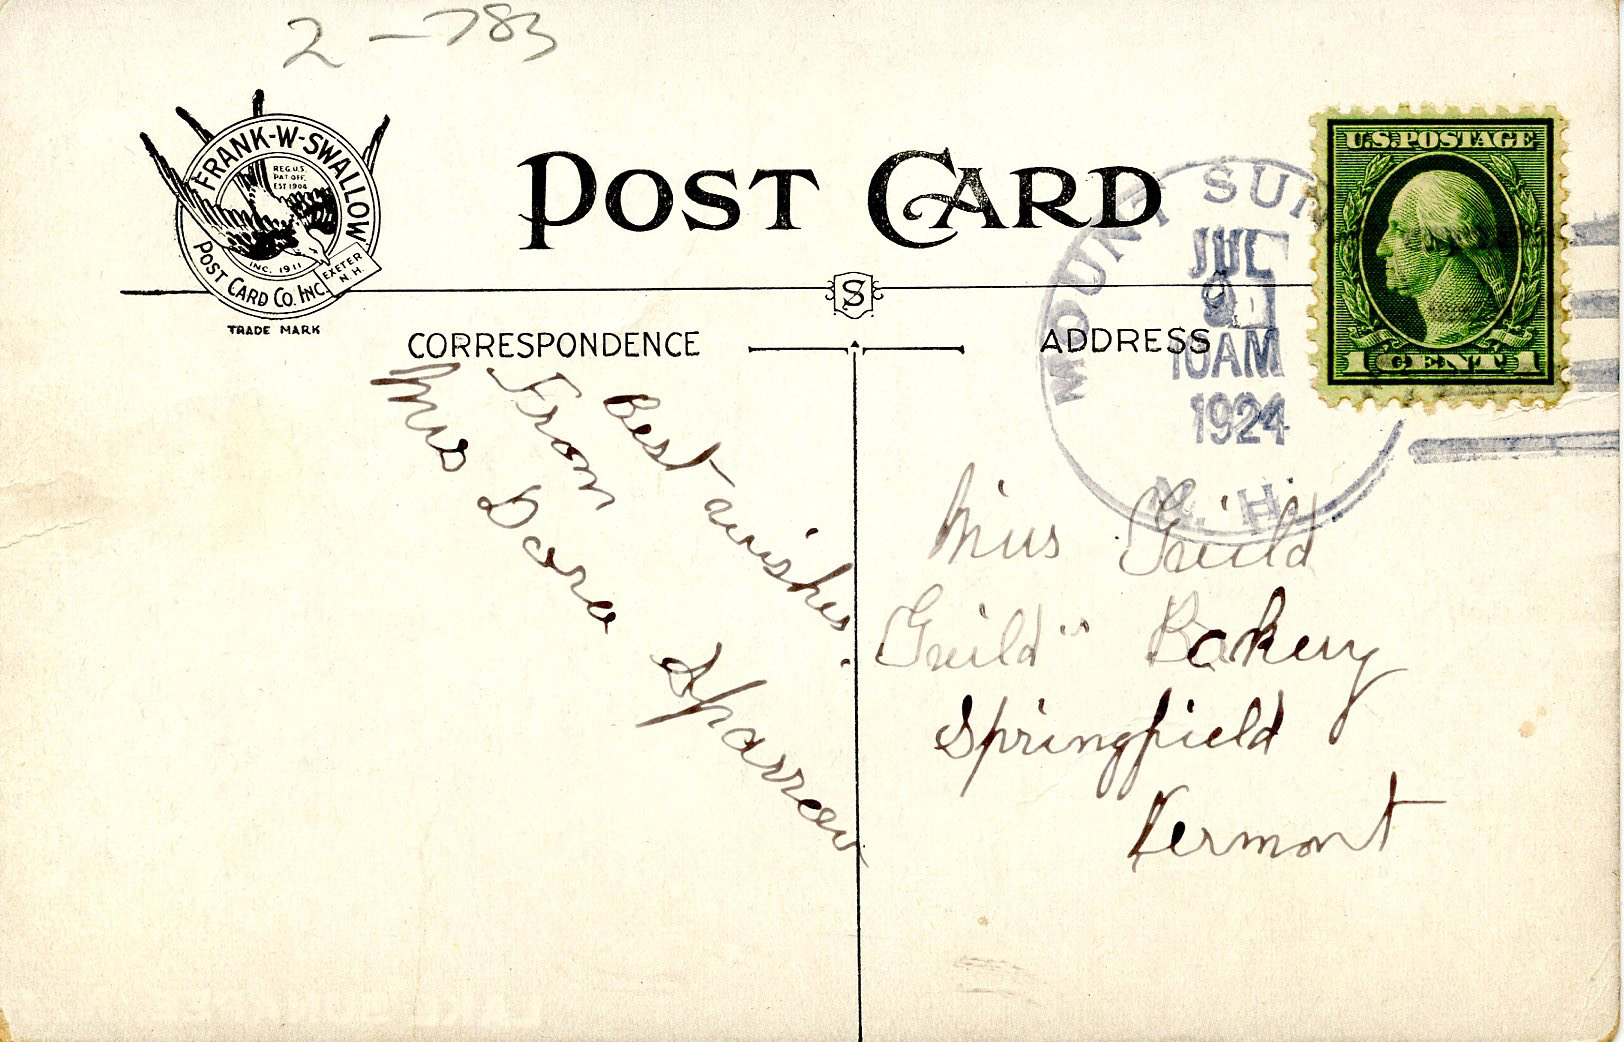 2-783
FRANK-W-SWALLOW
REG. U.S.
PAT OFF.
EST 1904
INC. 1911
POST CARD CO. INC.
EXETER
N.H.
TRADE MARK
POST CARD
S
CORRESPONDENCE
ADDRESS
U.S. POSTAGE
1 CENT 1
MOUNT SUN
JUL
9
10AM
1924
N. H.
Best wishes.
From
Mrs Dora Sparrow
Miss Guild
Guild"s Bakery
Springfield
Vermont